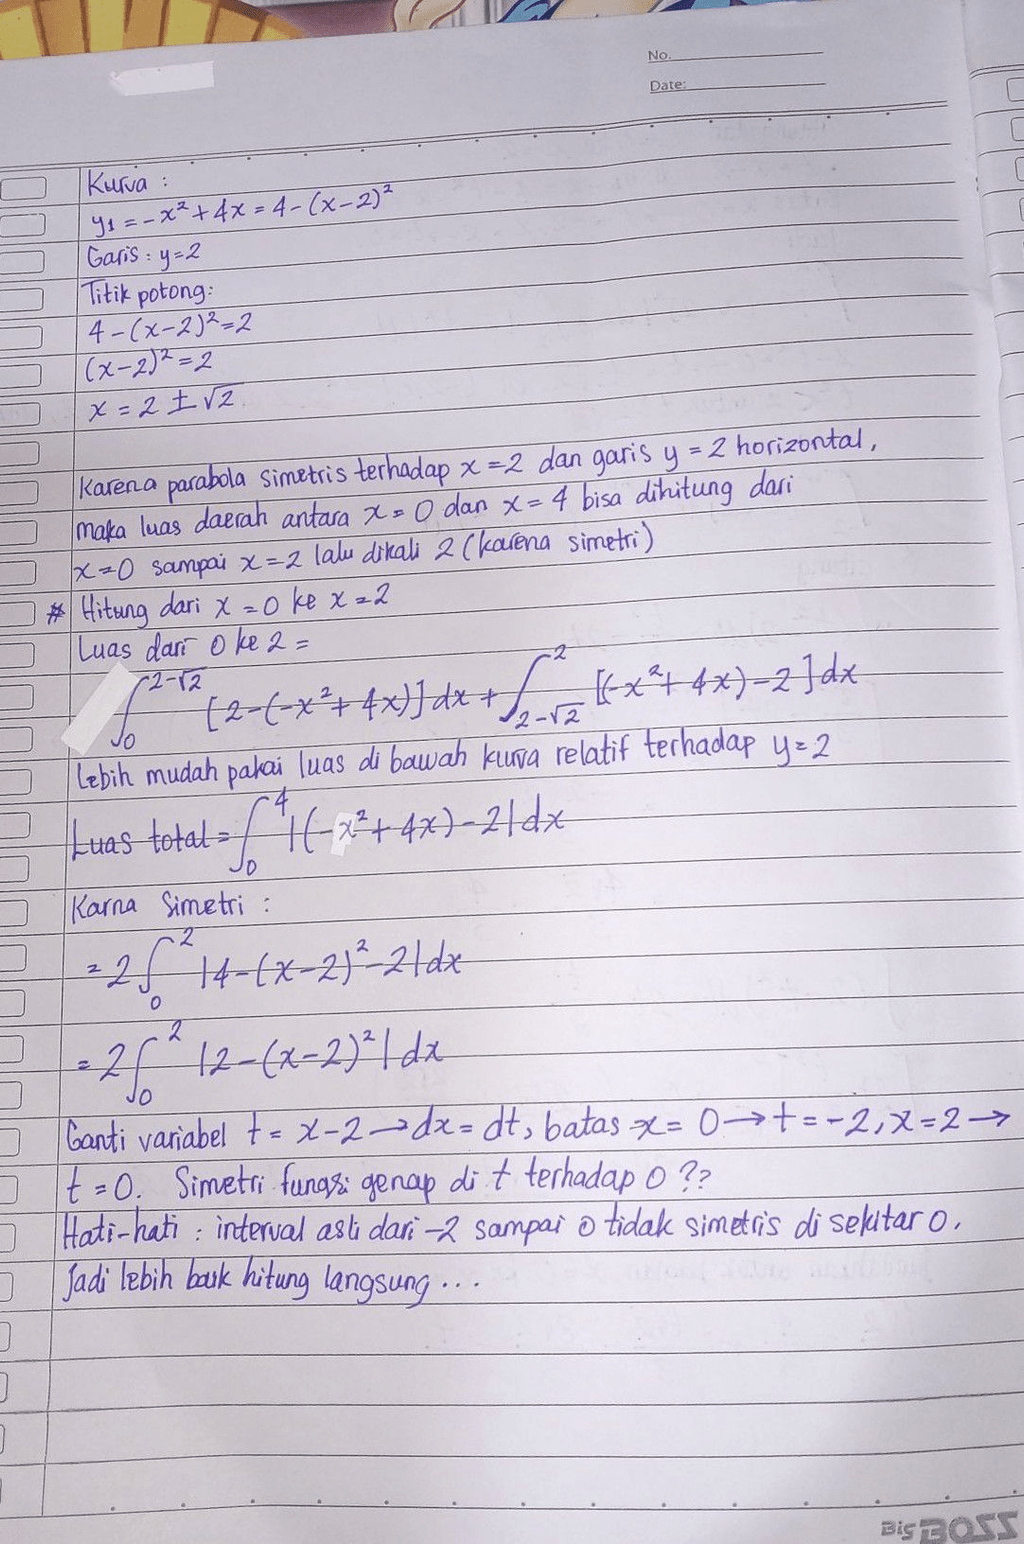 No.
Date:
Kurva :
y₁ = -x² + 4x = 4 - (x-2)²
Garis : y=2
Titik potong:
4 - (x-2)² = 2
(x-2)² = 2
x = 2 ± √2
Karena parabola simetris terhadap x = 2 dan garis y = 2 horizontal,
maka luas daerah antara x = 0 dan x = 4 bisa dihitung dari
x=0 sampai x = 2 lalu dikali 2 (karena simetri)
# Hitung dari x = 0 ke x = 2
Luas dari 0 ke 2 =
∫₀^(2-√2) [2-(-x²+4x)] dx + ∫_(2-√2)^2 [(-x²+4x)-2] dx
Lebih mudah pakai luas di bawah kurva relatif terhadap y=2
Luas total = ∫₀⁴ |(-x²+4x)-2| dx
Karna Simetri :
= 2∫₀² |4-(x-2)²-2| dx
= 2∫₀² |2-(x-2)²| dx
Ganti variabel t = x-2 → dx = dt, batas x = 0 → t = -2, x = 2 →
t = 0. Simetri fungsi genap di t terhadap 0 ??
Hati-hati : interval asli dari -2 sampai 0 tidak simetris di sekitar 0.
Jadi lebih baik hitung langsung ...
BIG BOSS